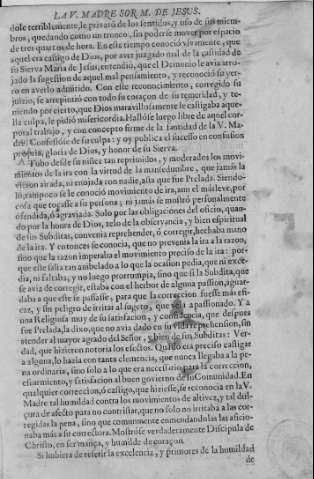 LA V. MADRE SOR M. DE JESUS.
dole terriblemente, le privarõ de los sentidos, y uso de sus miem-
bros, quedando como un tronco, sin poderse mover por espacio
de tres quartos de hora. En este tiempo conociò vivamente, que
aquel era castigo de Dios, por aver juzgado mal de la santidad de
su Sierva Maria de Jesus, entendiò, que el Demonio le avia arro-
jado la sugestion de aquel mal pensamiento, y reconociò su yer-
ro en averlo admitido. Con este reconocimiento, corregido su
juizio, se arrepintiò con todo su coraçon de su temeridad, y te-
niendo por cierto, que Dios maravillosamente le castigaba aque-
lla culpa, le pidiò misericordia. Hallòse luego libre de aquel cor-
poral trabajo, y con concepto firme de la santidad de la V. Ma-
dre. Confessòse de su culpa: y oy publica el sucesso en confusion
propria, gloria de Dios, y honor de su Sierva.
Tubo desde su niñez tan reprimidos, y moderados los movi-
mientos de la ira con la virtud de la mansedumbre, que jamàs la
vieron airada, ni enojada con nadie, asta que fue Prelada. Siendo-
lo, tampoco se le conociò movimiento de ira, aun el mas leve, por
cosa que togasse a su persona; ni jamàs se mostrò personalmente
ofendida, ò agraviada. Solo por las obligaciones del oficio, quan-
do por la honra de Dios, zelo de la observancia, y bien espiritual
de sus Subditas, convenia reprehender, ò corregir, hechaba mano
de la ira. Y entonces se conocia, que no prevenia la ira a la razon,
sino que la razon imperaba el movimiento preciso de la ira: por-
que este salia tan anivelado a lo que la ocasion pedia, que ni exce-
dia, ni faltaba; y no luego prorrumpia, sino que si la Subdita, que
se avia de corregir, estaba con el herbor de alguna passion, aguar-
daba a que este se passasse, para que la correccion fuesse mas efi-
caz, y sin peligro de irritar al sugeto, que està apassionado. Y a
una Religiosa muy de su satisfacion, y confiança, que despues
fue Prelada, la dixo, que no avia dado en su vida reprehension, sin
atender al mayor agrado del Señor, y bien de sus Subditas: Ver-
dad, que hizieron notoria los efectos. Quãdo era preciso castigar
a alguna, lo hazia con tanta clemencia, que nunca llegaba a la pe-
na ordinaria, sino solo a lo que era necessario para la correccion,
escarmiento, y satisfacion al buen govierno de su Comunidad. En
qualquier correccion, ò castigo, que hiziesse, se reconocia en la V.
Madre tal humildad contra los movimientos de altivez, y tal dul-
çura de afecto para no contristar, que no solo no irritaba a las cor-
regidas la pena, sino que comunmente enmendando las las aficio-
naba màs a su correctora. Mostròse verdaderamente Discipula de
Christo, en ser mansa, y humilde de coraçon.
Si hubiera de referir la excelencia, y primores de la humildad
de